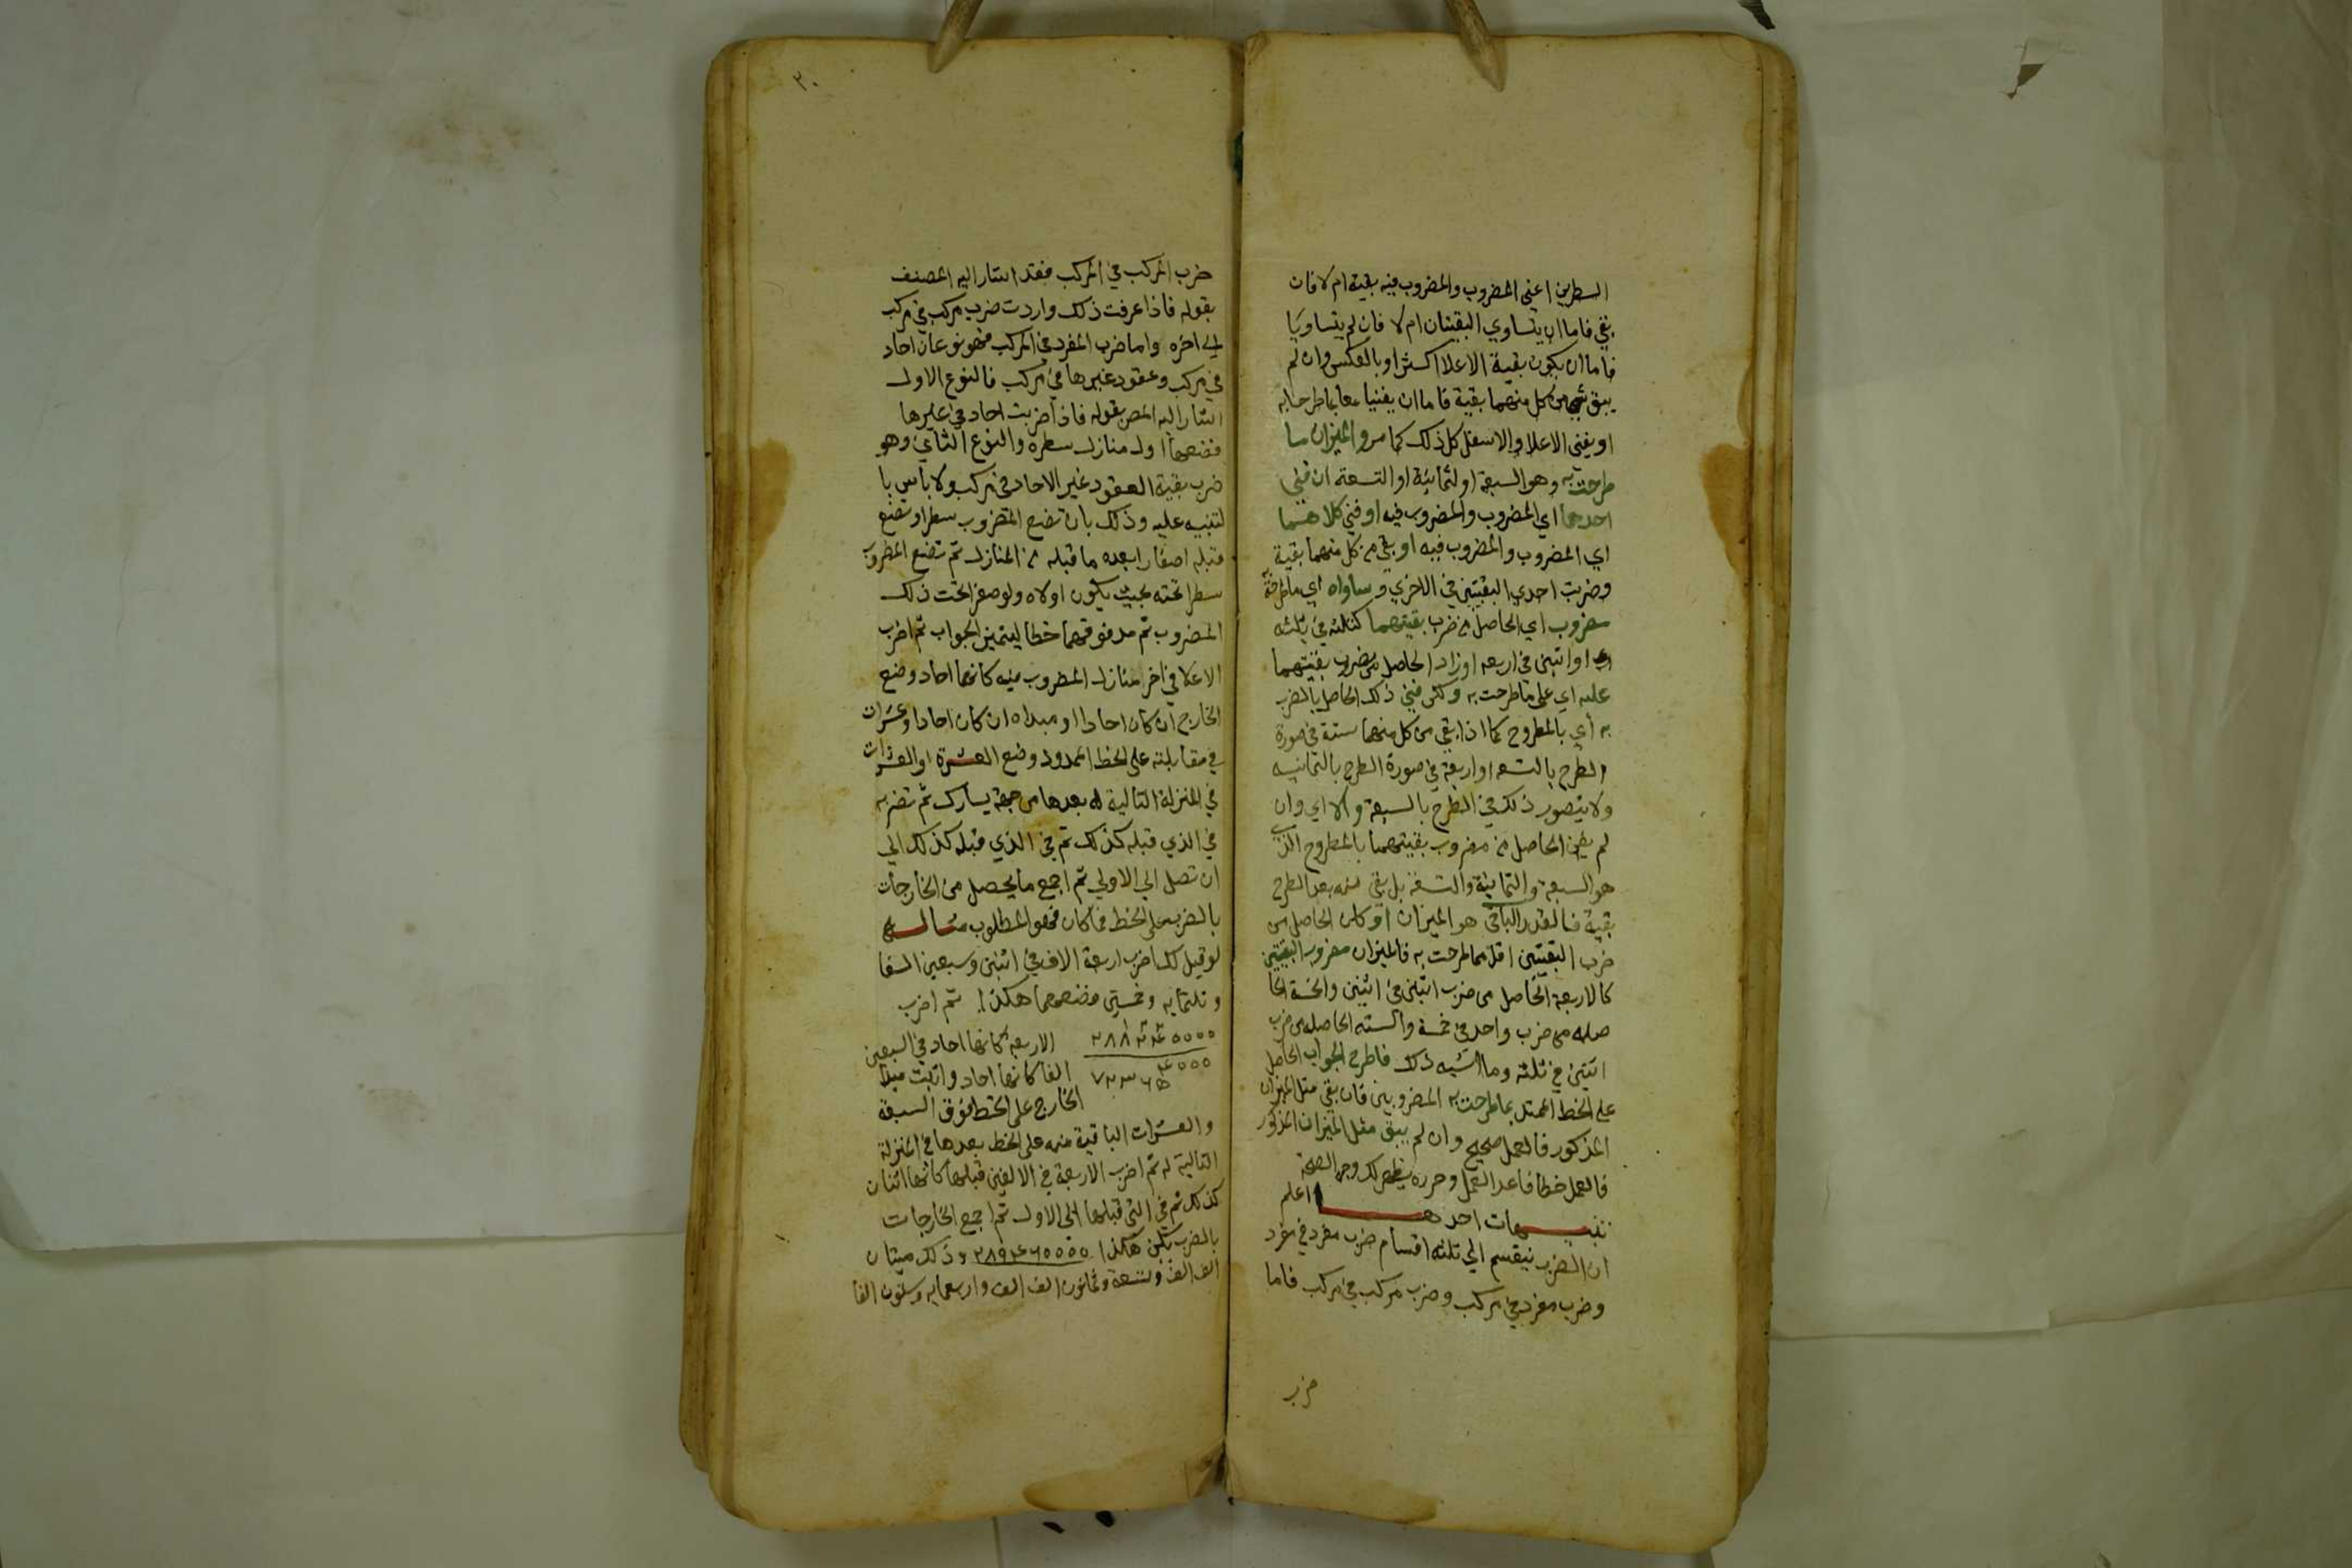 السطرين اعني المضروب والمضروب فيه بقية ام لا فان
بقي فاما ان يتساوي البقيتان ام لا فان لم يتساويا
فاما ان يكون بقية الاعلا اكثر او بالعكس وان لم
يبق من كل منهما بقية فاما ان يفنيا معا بما طرحا به
او يفني الاعلا والاسفل كل ذلك كما مر والميزان ما
طرحت به وهو السبعة او لثمانية او التسعة ان فني
احدهما اي المضروب والمضروب فيه او فني كلاهما
اي المضروب والمضروب فيه او بقي من كل منهما بقية
وضربت احدي البقيتين في الاخري وساواه اي ما طرحته
مضروب اي الحاصل من ضرب بقيتهما كثلثه في ثلثه
او اثنين في اربعه او زاد الحاصل من ضرب بقيتهما
عليه اي علي ما طرحت به ولكن فني ذلك الحاصل بالضرب
به اي بالمطروح كما اذا بقي من كل منهما ستة في صورة
الطرح بالتسعه او اربعة في صورة الطرح بالثمانيه
ولا يتصور ذلك في الطرح بالسبعة والا اي وان
لم يفن الحاصل من مضروب بقيتهما بالمطروح الذي
هو السبعة والثمانية والتسعة بل بقي منه بعد الطرح
بقية فالقدر الباقي هو الميزان او كان الحاصل من
ضرب البقيتين اقل مما طرحت به فالميزان مضروب البقيتين
كالاربعة الحاصل من ضرب اثنين في اثنين والخمسة الحا
صله من ضرب واحد في خمسة والسته الحاصله من ضرب
اثنين في ثلثه وما اشبه ذلك فاطرح الجواب الحاصل
علي الخط الممتد بما طرحت به المضروبين فان بقي مثل الميزان
المذكور فالعمل صحيح وان لم يبق مثل الميزان المذكور
فالعمل خطا فاعد العمل وحرره يظهر لك وجه الصحة
تنبيهات احدها اعلم
ان الضرب ينقسم الي ثلثه اقسام ضرب مفرد في مفرد
وضرب مفرد في مركب وضرب مركب في مركب فاما
ضرب
٢٠
ضرب المركب في المركب فقد اشار اليه المصنف
بقوله فاذا عرفت ذلك واردت ضرب مركب في مركب
الي اخره واما ضرب المفرد في المركب فهو نوعان احاد
في مركب وعقود غيرها في مركب فالنوع الاول
اشار اليه المص بقوله فاذا ضربت احاد في غيرها
فضعهما اول منازل سطره والنوع الثاني وهو
ضرب بقية العقود غير الاحاد في مركب ولا باس با
لتنبيه عليه وذلك بان تضع المضروب سطرا وتضع
قبله اصفارا بعده ما قبله من المنازل ثم تضع المضروب
سطرا تحته بحيث يكون اولاه ولو صفرا تحت ذلك
المضروب ثم مد فوقهما خطا ليتميز الجواب ثم اضرب
الاعلا في اخر منازل المضروب فيه كانها احاد وضع
الخارج ان كان احادا او مبداه ان كان احادا وعشرات
في مقابلته علي الخط الممدود وضع العشرة او العشرات
في المنزلة التالية له بعدها من جهة يسارك ثم تضربه
في الذي قبله كذلك ثم في الذي قبله كذلك الي
ان تصل الي الاولي ثم اجمع ما يحصل من الخارجات
بالضرب علي الخط فما كان فهو المطلوب مثاله
لو قيل لك اضرب اربعة الاف في اثنين وسبعين الفا
وثلثمايه وخمسة فضعهما هكذا ثم اضرب
الاربعة كانها احاد في السبعين
الفا كانها احاد واثبت مبدا
الخارج علي الخط فوق السبعة
والعشرات الباقية منه علي الخط بعدها في المنزلة
التالية له ثم اضرب الاربعة في الالفين قبلها كانها اثنان
كذلك ثم في التي قبلها الي الاول ثم اجمع الخارجات
بالضرب يكن هكذا ٢٨٩٤٦٥٥٥٥ وذلك ميتان
الف الف وتسعة وثمانون الف الف واربعمايه وستون الفا